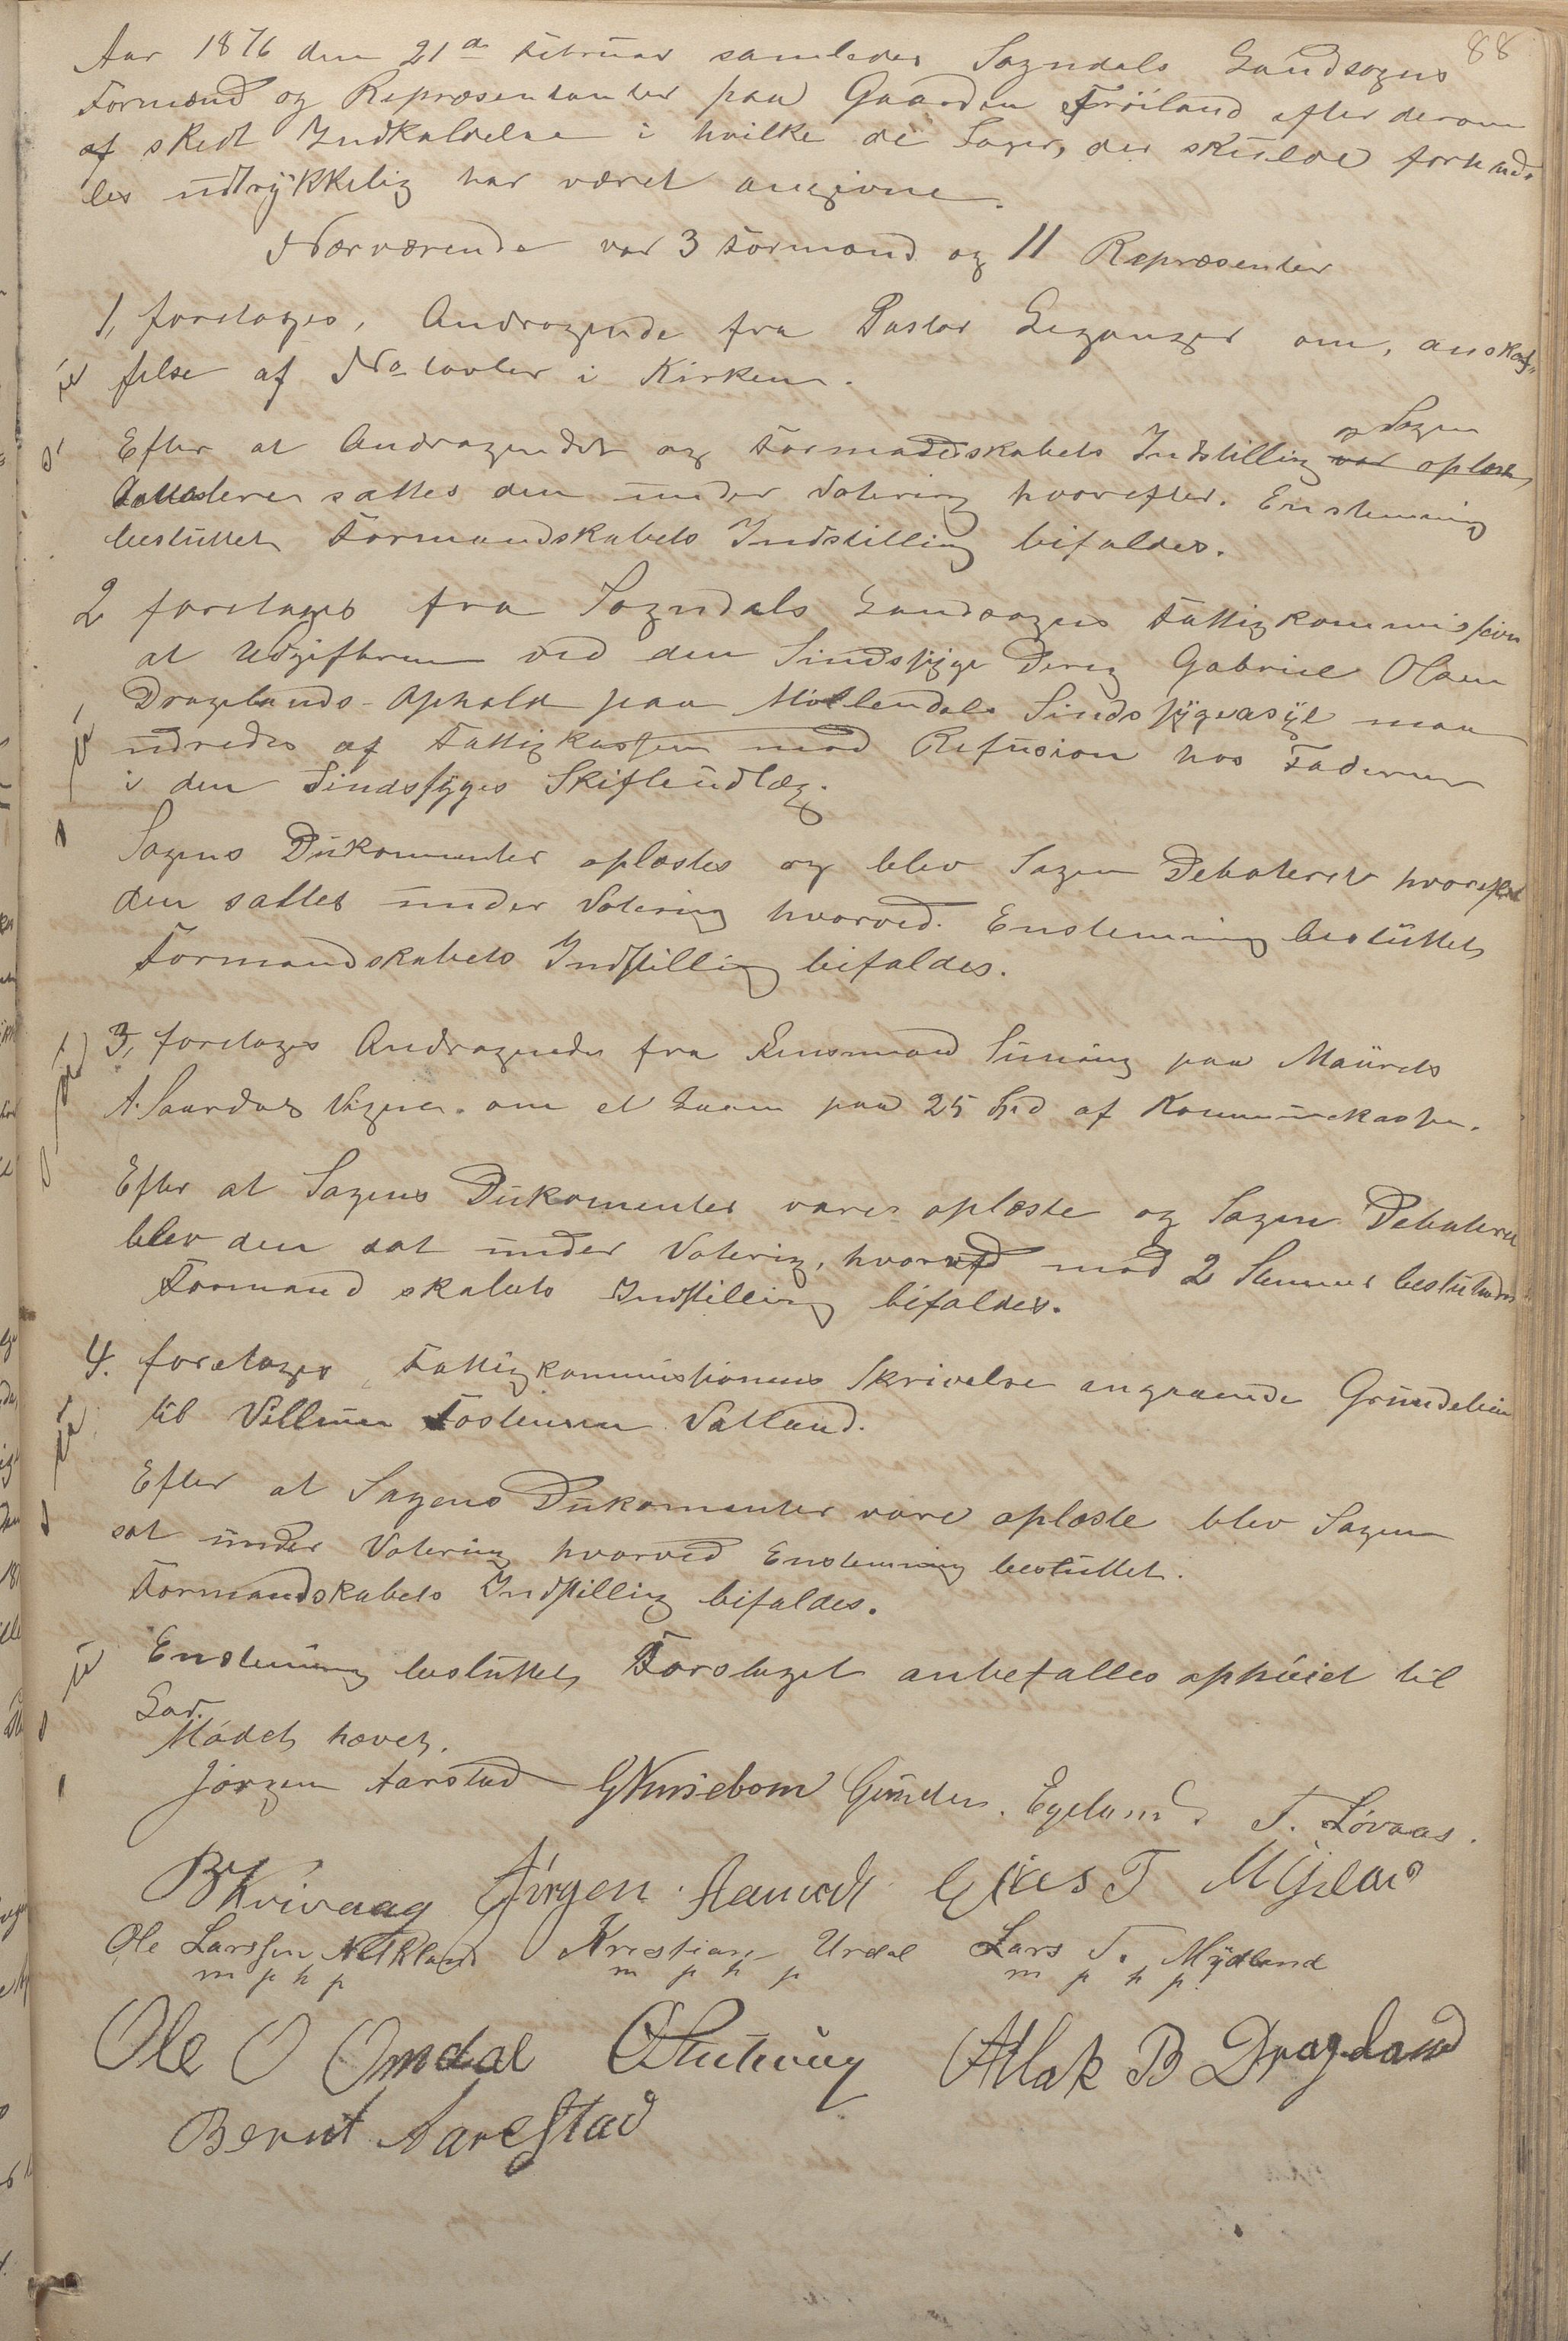 88
Aar 1876 den 21de Februar samledes Sogndals Landsogns
Formænd og Repræsentanter paa Gaarden Frøiland efter derom
af skedt Indkaldelse i hvilke de Sager, der skulde forhand-
les udtrykkelig har været angivne.
Nærværende var 3 Formænd og 11 Repræsenter
1, foretoges, Andragende fra Pastor Leganger om, anskaf-
felse af No tavler i Kirken.
og Sagen
Efter at Andragendet og Formandskabets Indstilling var oplæst,
sattes den under Votering hvorefter. Enstemmig
besluttet Formandskabets Indstilling bifaldes.
2 foretoges fra Sogndals Landsogns Fattigkommission
at Udgifterne ved den Sindssyge Gabriel Olsen
Dragelands Ophold paa Møllendals Sindssygeasyl maa
udredes af Fattigkassen mod Refusion hos Faderen
i den Sindssyges Skifteudlæg.
Sagens Dukomenter oplæstes og blev Sagen Debateret hvorefter
den sattes under Votering hvorved. Enstemmig besluttet
Formandskabets Indstilling bifaldes.
3, foretoges Andragende fra paa
om et Laan paa 25 Spd af Kommunekassen.
Efter at Sagens Dukomenter vare oplæste og Sagen Debateret
blev den sat under Votering, hvorved mod 2 Stemmer besluttedes
Formandskabets Indstilling bifaldes.
4. foretoges, Fattigkommissionens Skrivelse angaaende
til Tostensen Vatland.
Efter at Sagens Dukomenter vare oplæste blev Sagen
sat under Votering hvorved Enstemmig besluttet.
Formandskabets Indstilling bifaldes.
Enstemmig besluttet, Forslaget anbefalles ophøiet til
Lov.
Mødet hævet.
Jørgen Aarstad Gunder. Egeland. T. Løvaas.
B Kvivaag Jørgen
Ole Larssen Netland Kristian Urdal Lars T. Mydland
m p h p m p h p m p h p
Ole O Omdal Atlak B Dragland
Bernt Aarestad